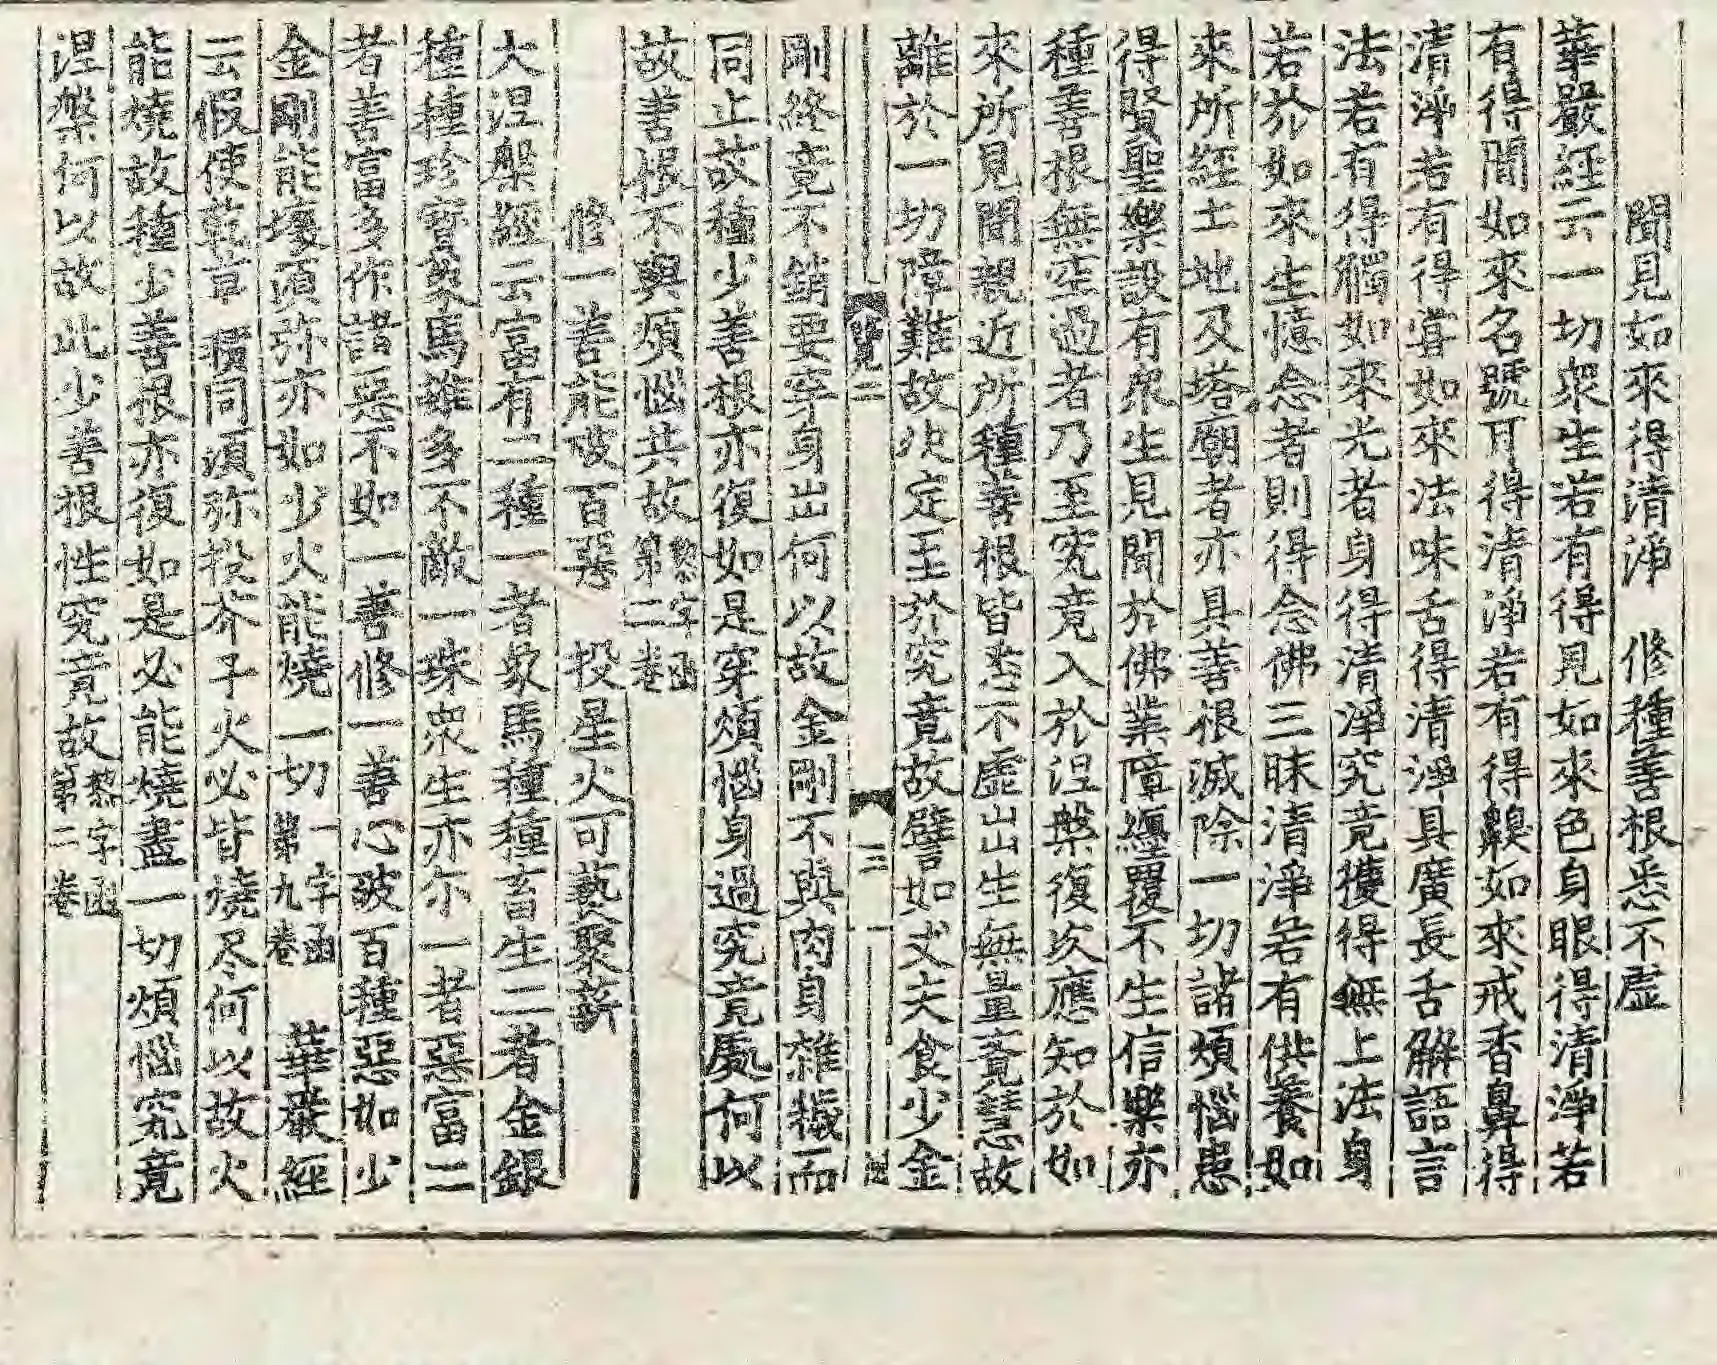 聞見如來得清淨　修種善根悉不虛
華嚴経云一切衆生若有得見如來色身眼得清淨若
有得聞如來名號耳得清淨若有得齅如來戒香鼻得
清淨若有得嘗如來法味舌得清淨具廣長舌解語言
法若有得觸如來光者身得清淨究竟獲得無上法身
若於如來生憶念者則得念佛三昧清淨若有供養如
來所経土地及塔廟者亦具善根滅除一切諸煩惱患
得賢聖樂設有衆生見聞於佛業障纒覆不生信樂亦
種善根無空過者乃至究竟入於涅槃復次應知於如
來所見聞親近所種善根皆悉不虛出生無量竟慧故
離於一切障難故决定至於究竟故譬如丈夫食少金
覽二
三
剛終竟不銷要穿身出何以故金剛不與肉身雜穢而
同止故種少善根亦復如是穿煩惱身過究竟處何以
故善根不與煩惱共故黎字函第二卷
修一善能破百惡　投星火可爇聚薪
大涅槃經云富有二種一者象馬種種畜生二者金銀
種種珍寳象馬雖多不敵一珠衆生亦尓一者惡富二
者善富多作諸惡不如一善修一善心破百種惡如少
金剛能壞須弥亦如少火能燒一切一字函第九卷　華嚴經
云假使乾草積同須弥投芥子火必皆燒尽何以故火
能燒故種少善根亦復如是必能燒盡一切煩惱究竟
涅槃何以故此少善根性究竟故黎字函第二卷